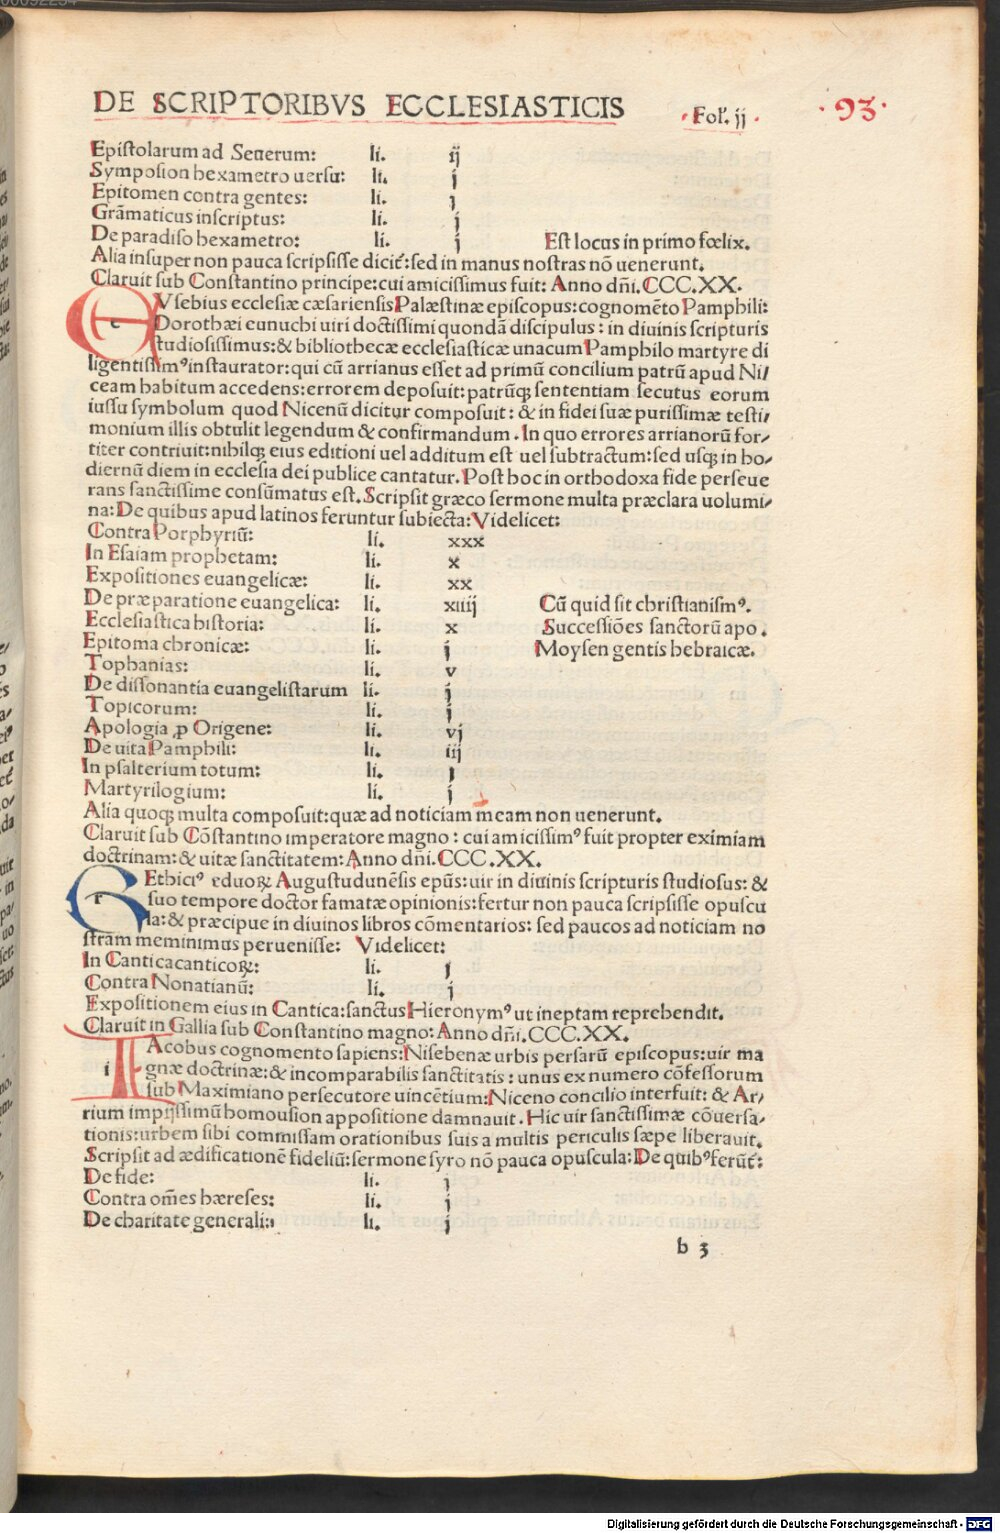 DE SCRIPTORIBVS ECCLESIASTICIS Fol. ij · 93 ·
Epistolarum ad Seuerum: li. ij
Symposion hexametro uersu: li. j
Epitomen contra gentes: li. j
Grãmaticus inscriptus: li. j
De paradiso hexametro: li. j Est locus in primo fœlix.
Alia insuper non pauca scripsisse dicit̃: sed in manus nostras nõ uenerunt.
Claruit sub Constantino principe: cui amicissimus fuit: Anno dñi. CCC.XX.
EVsebius ecclesiæ cæsariensis Palæstinæ episcopus: cognomẽto Pamphili:
Dorothæi eunuchi uiri doctissimi quondã discipulus: in diuinis scripturis
studiosissimus: & bibliothecæ ecclesiasticæ unacum Pamphilo martyre di
ligentissimꝰ instaurator: qui cũ arrianus esset ad primũ concilium patrũ apud Ni/
ceam habitum accedens: errorem deposuit: patrũqꝫ sententiam secutus eorum
iussu symbolum quod Nicenũ dicitur composuit: & in fidei suæ purissimæ testi/
monium illis obtulit legendum & confirmandum. In quo errores arrianorũ for/
titer contriuit: nihilqꝫ eius editioni uel additum est uel subtractum: sed usqꝫ in ho/
diernũ diem in ecclesia dei publice cantatur. Post hoc in orthodoxa fide perseue
rans sanctissime consũmatus est. Scripsit græco sermone multa præclara uolumi/
na: De quibus apud latinos feruntur subiecta: Videlicet:
Contra Porphyriũ: li. xxx
In Esaiam prophetam: li. x
Expositiones euangelicæ: li. xx
De præparatione euangelica: li. xiiij Cũ quid sit christianismꝰ.
Ecclesiastica historia: li. x Successiões sanctorũ apo.
Epitoma chronicæ: li. j Moysen gentis hebraicæ.
Tophanias: li. v
De dissonantia euangelistarum li. j
Topicorum: li. j
Apologia ꝓ Origene: li. vj
De uita Pamphili: li. iij
In psalterium totum: li. j
Martyrilogium: li. j
Alia quoqꝫ multa composuit: quæ ad noticiam meam non uenerunt.
Claruit sub Cõstantino imperatore magno: cui amicissimꝰ fuit propter eximiam
doctrinam: & uitæ sanctitatem: Anno dñi. CCC.XX.
REthiciꝰ eduoꝝ Augustudunẽsis epũs: uir in diuinis scripturis studiosus: &
suo tempore doctor famatæ opinionis: fertur non pauca scripsisse opuscu
la: & præcipue in diuinos libros cõmentarios: sed paucos ad noticiam no
stram meminimus peruenisse: Videlicet:
In Cantica canticoꝝ: li. j
Contra Nonatianũ: li. j
Expositionem eius in Cantica: sanctus Hieronymꝰ ut ineptam reprehendit.
Claruit in Gallia sub Constantino magno: Anno dñi. CCC.XX.
IAcobus cognomento sapiens: Nisebenæ urbis persarũ episcopus: uir ma
gnæ doctrinæ: & incomparabilis sanctitatis: unus ex numero cõfessorum
sub Maximiano persecutore uincẽtium: Niceno concilio interfuit: & Ar/
rium impijssimũ homousion appositione damnauit. Hic uir sanctissimæ cõuersa/
tionis: urbem sibi commissam orationibus suis a multis periculis sæpe liberauit.
Scripsit ad ædificationẽ fideliũ: sermone syro nõ pauca opuscula: De quibꝰ ferũt̃:
De fide: li. j
Contra om̃es hæreses: li. j
De charitate generali: li. j
b 3
Digitalisierung gefördert durch die Deutsche Forschungsgemeinschaft - DFG